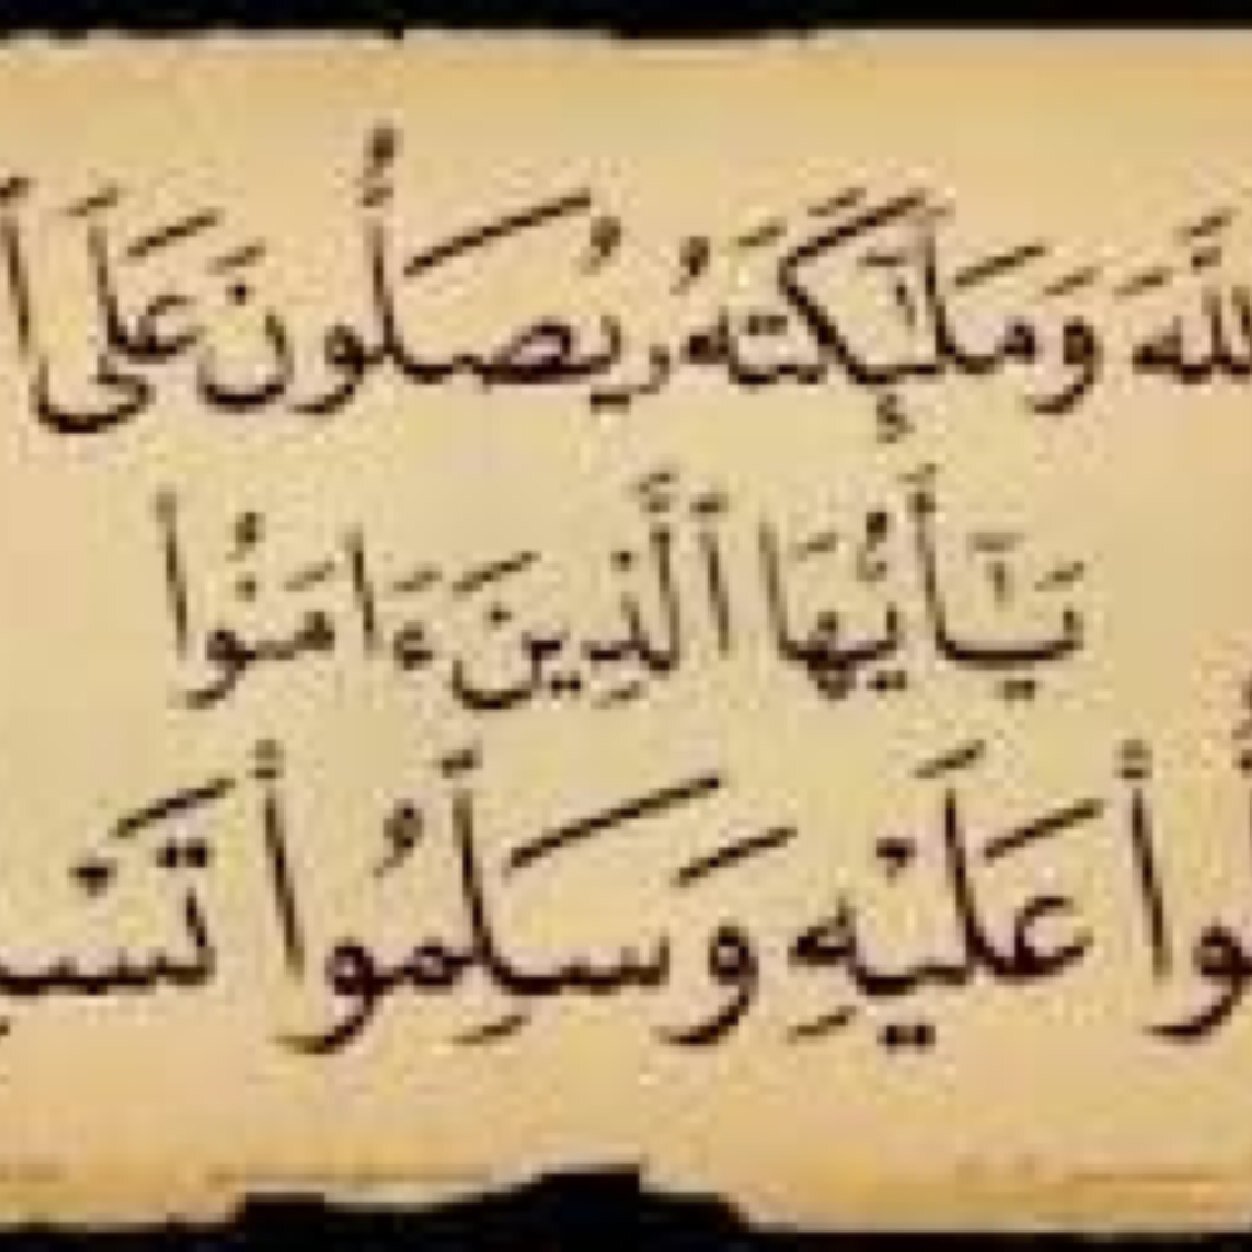 للَّهَ وَمَلَـٰٓئِكَتَهُۥ يُصَلُّونَ عَلَى ٱ
يَـٰٓأَيُّهَا ٱلَّذِينَ ءَامَنُوا۟
لُّوا۟ عَلَيْهِ وَسَلِّمُوا۟ تَسْـ